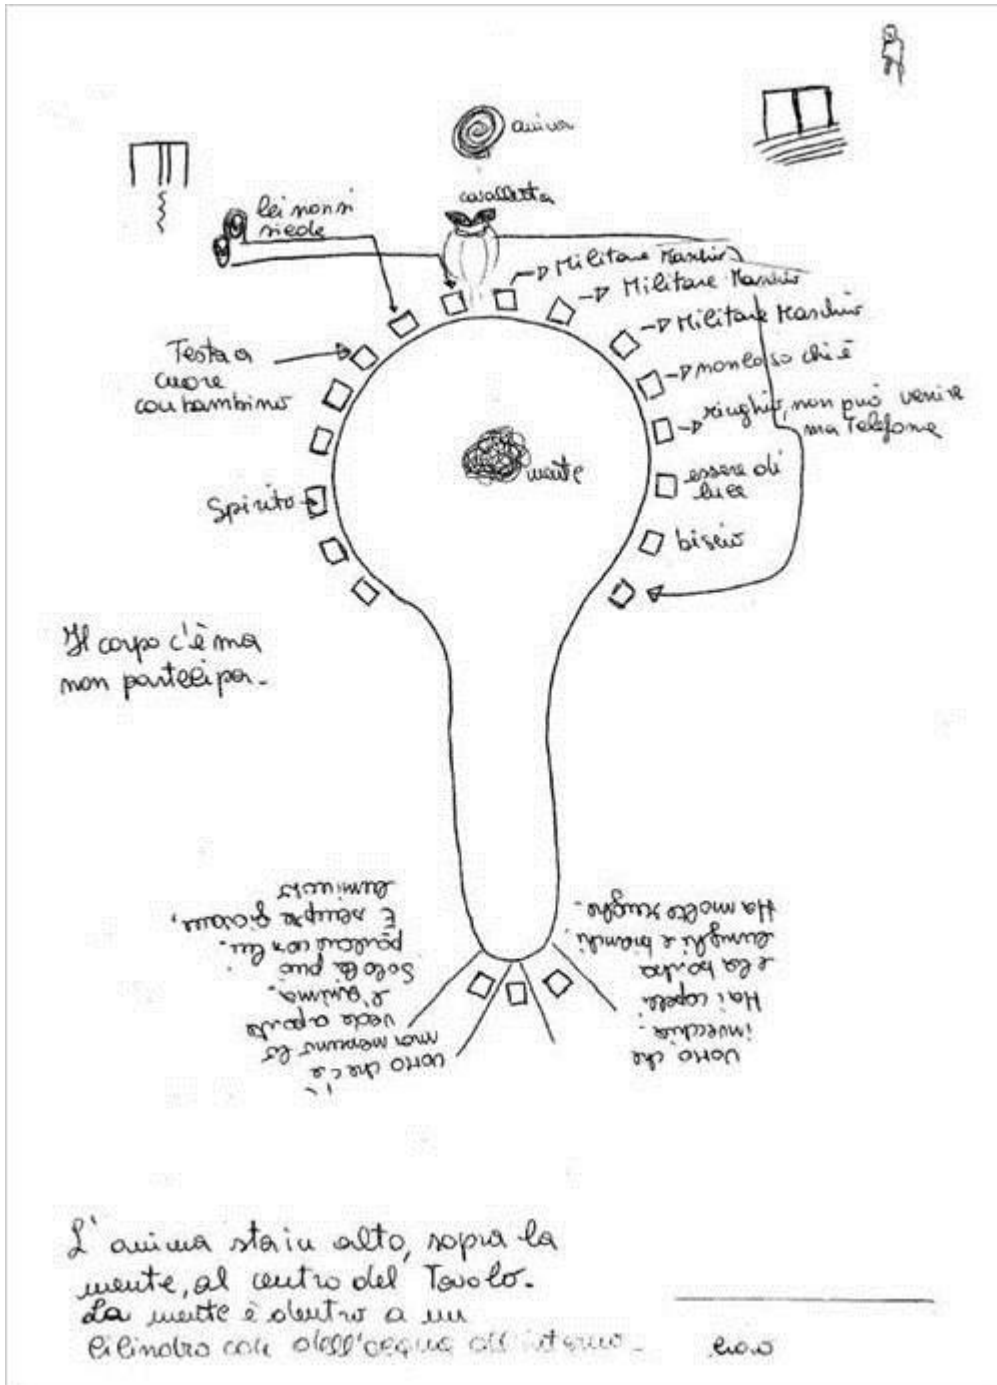 anima
cavalletta
lei non si
siede
Militare Maschio
Militare Maschio
Militare Maschio
non lo so chi è
ringhio, non può venire
ma Telefona
essere di
luce
biscio
Testa a
cuore
con bambino
mente
Spirito
Il corpo c'è ma
non partecipa.
Uomo che c'è
ma nessuno lo
vede a parte
l'anima.
Solo lei può
parlare con lui.
E' sempre giovane,
luminoso
Uomo che
invecchia.
Ha i capelli
e la barba
lunghi e bianchi.
Ha molte rughe.
L'anima sta in alto, sopra la
mente, al centro del Tavolo.
La mente è dentro a un
cilindro con dell'acqua all'interno.